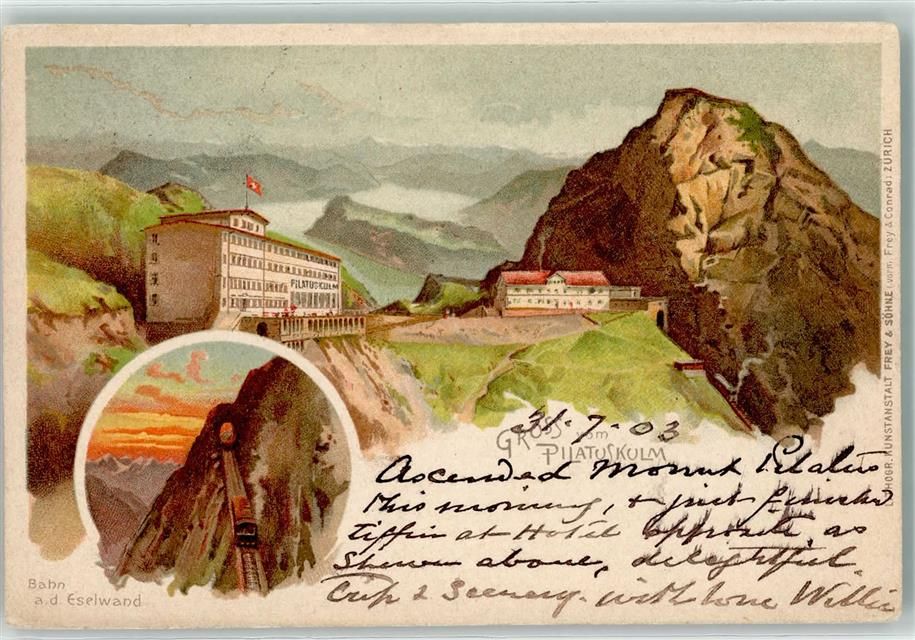 PILATUSKULM
31-7-03
GRUSS vom
PILATUSKULM
Ascended Mount Pilatus
this morning, & just finished
tiffin at Hotel opposite, as
shewn above, delightful
trip & Scenery. with love Willie
Bahn
a.d. Eselwand
LITHOGR. KUNSTANSTALT FREY & SÖHNE (vorm. Frey & Conrad) ZÜRICH